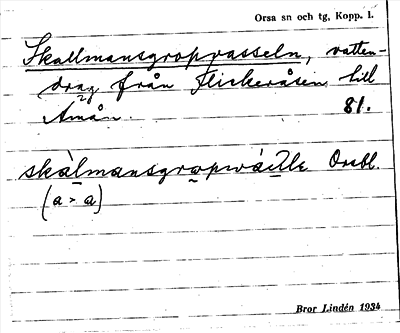 Orsa sn och tg, Kopp. l.
Skallmansgropvasseln, vatten-
drag från Flickeråsen till
Åmån. 81.
skàlmansgropwásle Orsbl.
(a > a)
Bror Lindén 1934